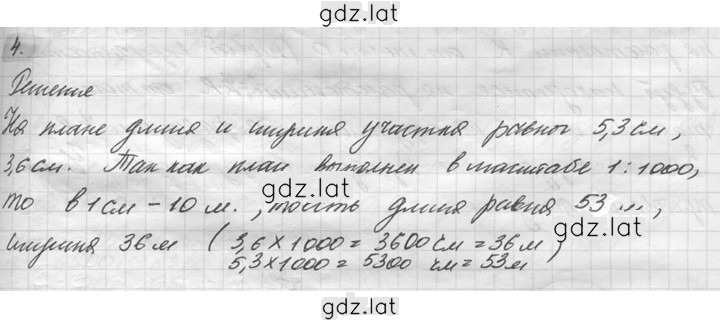 gdz.lat
4.
Решение
На плане длина и ширина участка равног 5,3 см,
gdz.lat
3,6 см. Так как план выполнен в масштабе 1:1000,
gdz.lat
то в 1 см – 10 м. , тоесть длина равна 53 м,
ширина 36 м ( 3,6 × 1000 = 3600 см = 36 м )
5,3 × 1000 = 5300 см = 53 м
gdz.lat